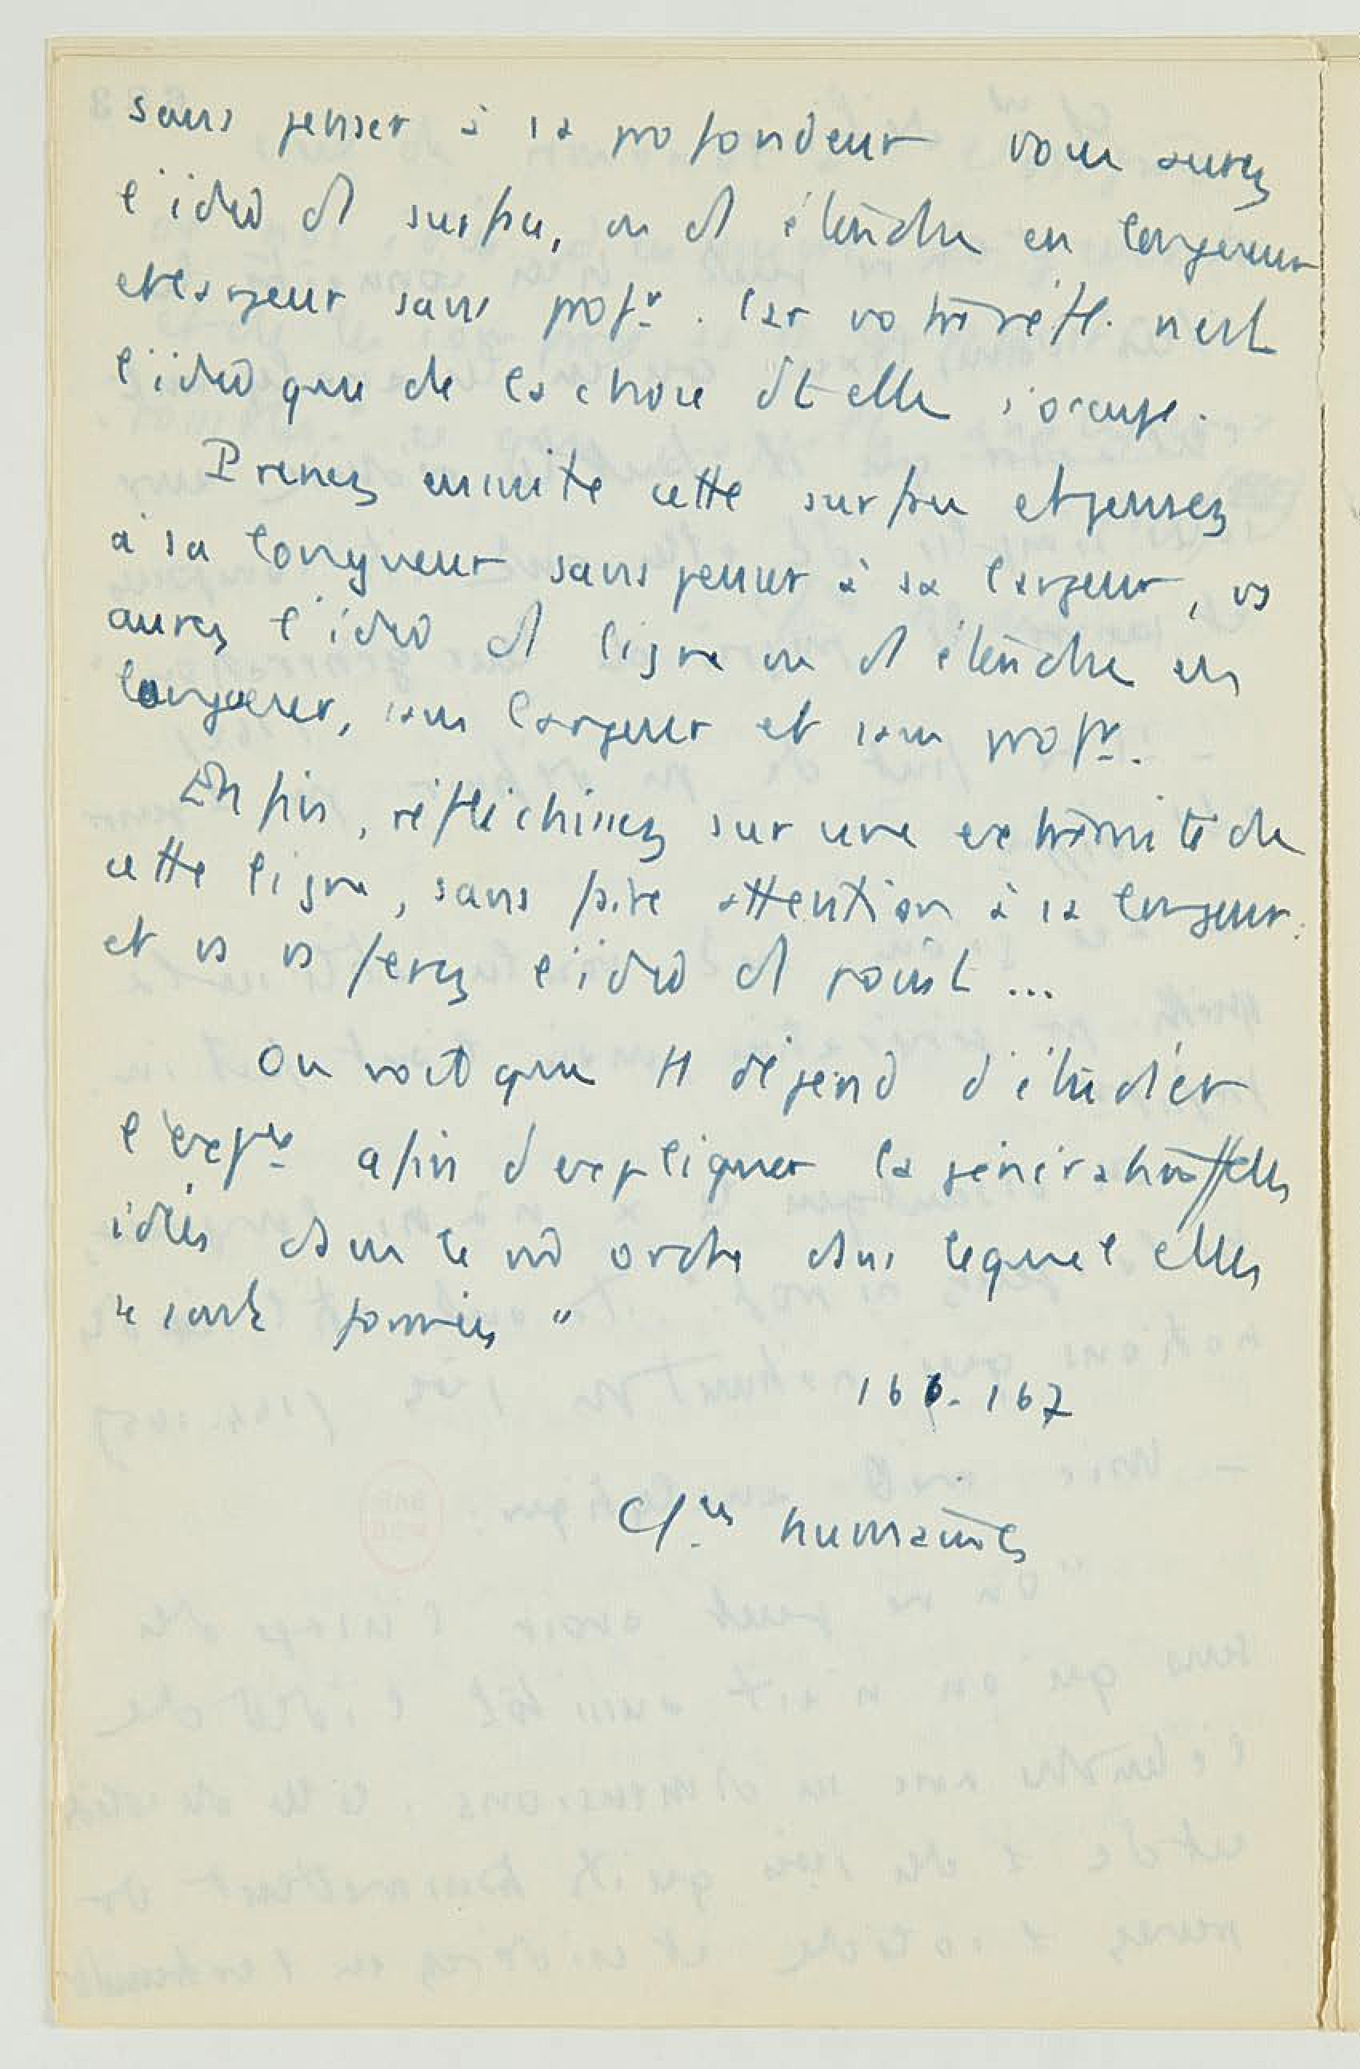 sans penser à la profondeur vous aurez
l'idée d surface, ou d étendue en longueur
et largeur sans profr. Car votre réfl. n'est
l'idée que de la chose dt elle s'occupe.
Prenez ensuite cette surface et pensez
à sa longueur sans penser à sa largeur, vs
aurez l'idée d ligne ou d étendue en
longueur, sans largeur et sans profr.
Enfin, réfléchissez sur une extrémité de
cette ligne, sans faire attention à la longueur.
et vs vs ferez l'idée d point ...
On voit que tt dépend d'étudier
l'expce afin d'expliquer la génération des
idées dans le md ordre dans lequel elles
se sont formées "
166-167
Cf. ces humaines